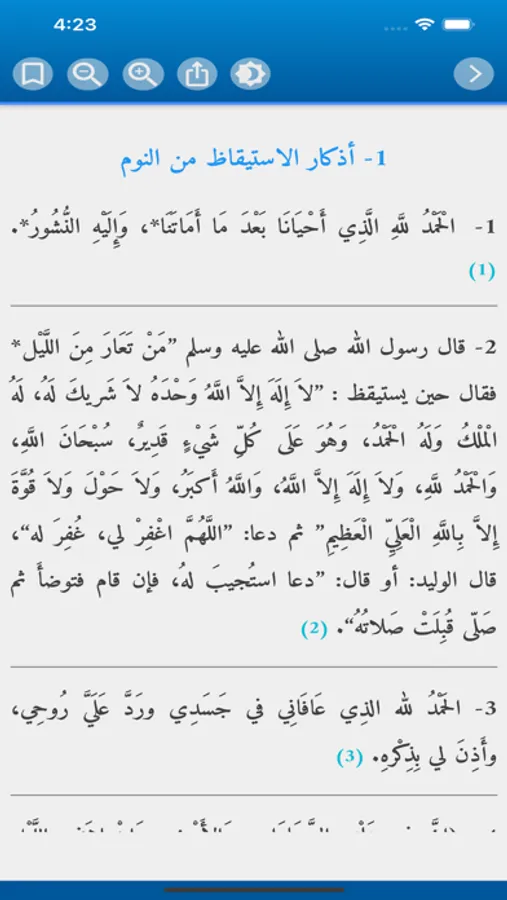 4:23
1- أذكار الاستيقاظ من النوم
1- الْحَمْدُ للَّهِ الَّذِي أَحْيَانَا بَعْدَ مَا أَمَاتَنَا*، وَإِلَيْهِ النُّشُورُ*.
(1)
2- قال رسول الله صلى الله عليه وسلم ”مَنْ تَعَارَ مِنَ اللَّيْل*
فقال حين يستيقظ : ”لاَ إِلَهَ إِلاَّ اللَّهُ وَحْدَهُ لاَ شَريكَ لَهُ، لَهُ
الْمُلْكُ وَلَهُ الْحَمْدُ، وَهُوَ عَلَى كُلِّ شَيْءٍ قَدِيرٌ، سُبْحَانَ اللَّهِ،
وَالْحَمْدُ للَّهِ، وَلاَ إِلَهَ إِلاَّ اللَّهُ، وَاللَّهُ أَكبَرُ، وَلاَ حَوْلَ وَلاَ قُوَّةَ
إِلاَّ بِاللَّهِ الْعَلِيِّ الْعَظِيمِ” ثم دعا: ”اللَّهُمَّ اغْفِرْ لي، غُفِرَ له“،
قال الوليد: أو قال: ”دعا استُجيبَ لهُ، فإن قام فتوضأَ ثم
صَلّى قُبِلَتْ صَلاتُهُ“. (2)
3- الحَمْدُ لله الذِي عَافَانِي في جَسَدِي ورَدَّ عَلَيَّ رُوحِي،
وأَذِنَ لي بِذِكْرهِ. (3)